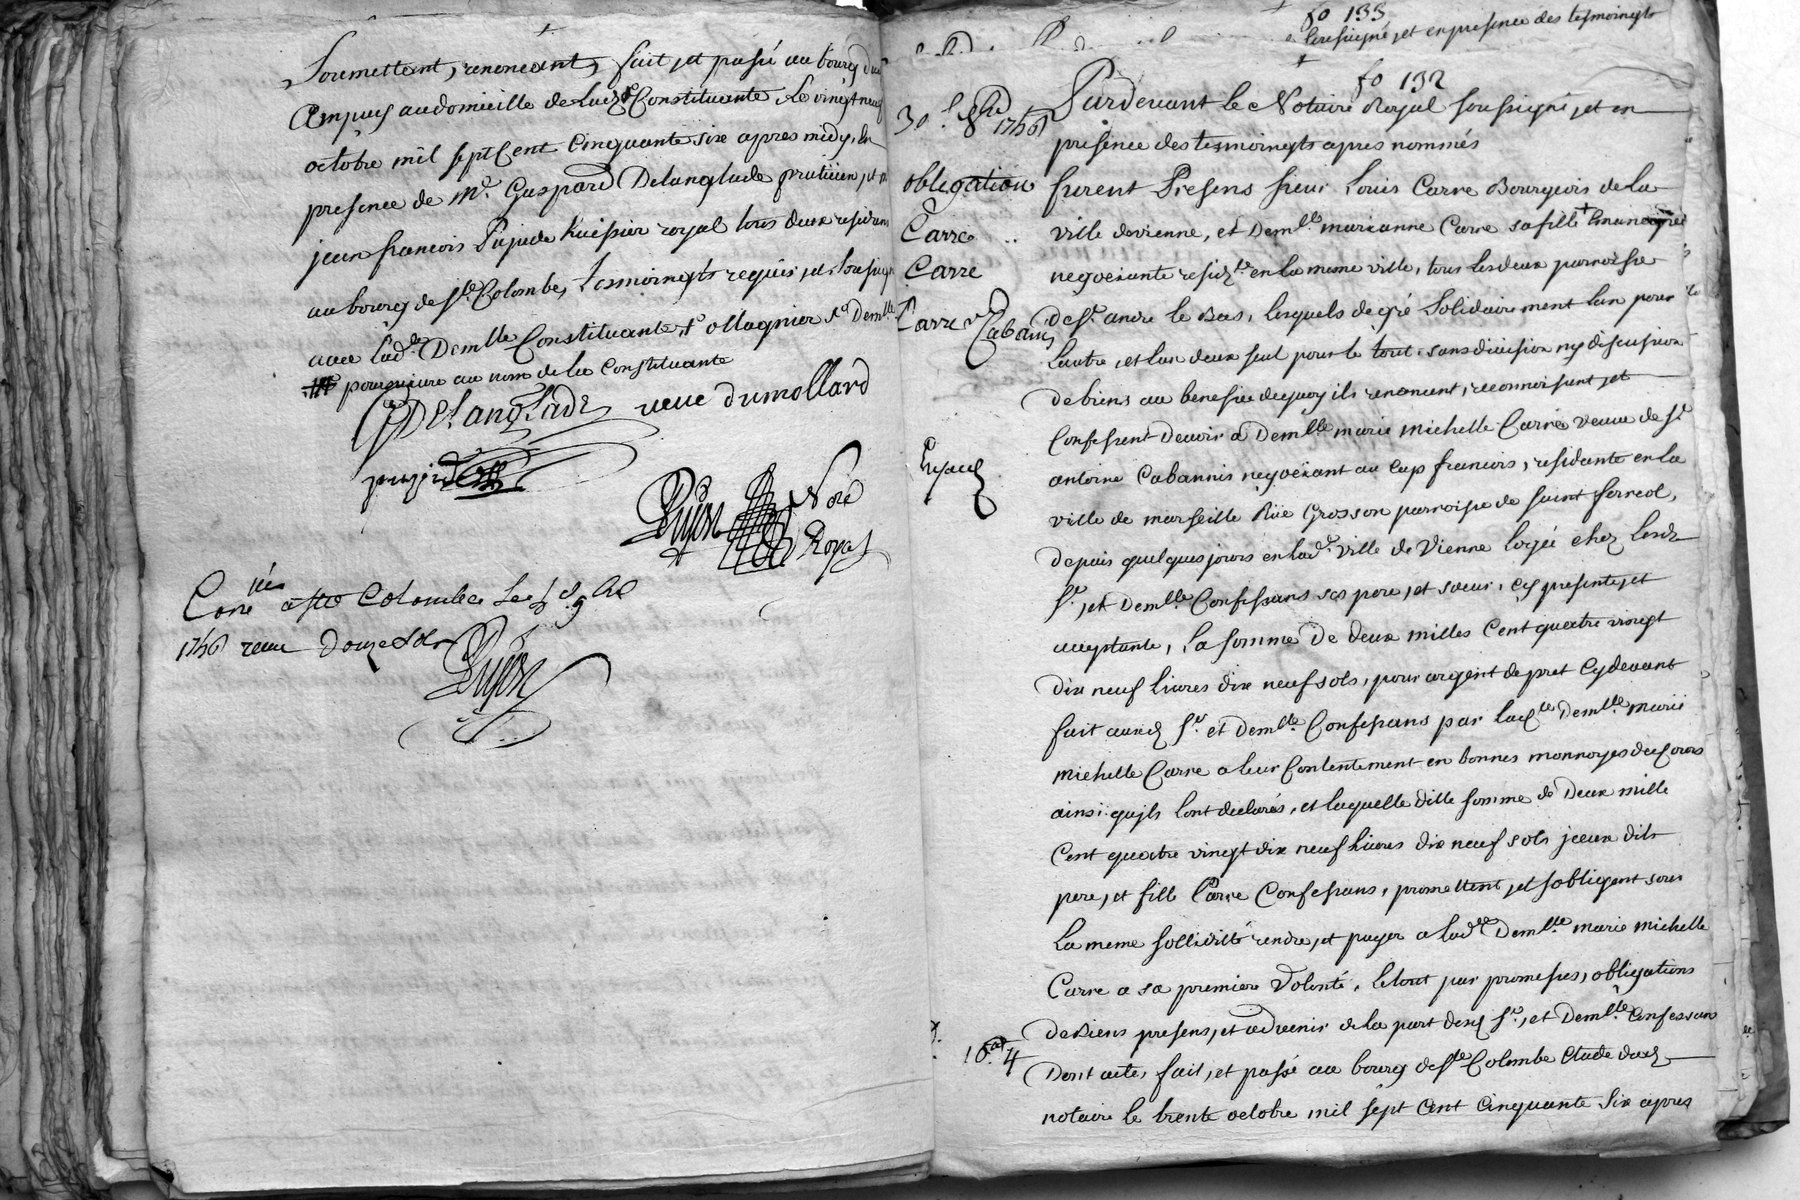 Soumettant, renoncant, fait et passé au bourg du
Ampuy au domicille de lad. Constituante, le vingt neuf
octobre mil sept Cent Cinquante six apres midy, en
presence de Mr. Gaspard Delanglade praticien, et
jean francois Pujade huissier royal tous deux residans
au bourg de Ste. Colombe, tesmoingts requis, et soussignes
avec lad.e Demlle Constituante
poursuivre au nom de la Constituante
Delanglade veuve dumollard
pujade
Dujon No.re Royal
Con.né a Ste Colombe Le 9.bre
1756 recu Douze sols
Dujon
fo 133
soussigné, et en presence des tesmoingts
fo 132
30.e 8bre 1756
Pardevant le Notaire Royal soussigné, et en
presence des tesmoingts apres nommés
obligation
Carre
Carre
Carre ve. Cabanis
furent Presens sieur Louis Carre Bourgeois de la
ville de vienne, et Demlle. marianne Carre sa fille + Emancipée
negociante resid.te en la meme ville, tous les deux parroisse
de St. andre le Bas, lesquels de gré solidairement l'un pour
l'autre, et l'un deux seul pour le tout, sans division ny discussion
de biens au benefice dequoy ils renoncent, reconnoissent, et
Confessent devoir a Demlle. marie michelle Carre veuve de Sr.
antoine Cabannis negociant au Cap francois, residante en la
ville de marseille Rüe Grosson parroisse de saint ferreol,
depuis quelques jours en lad.e ville de Vienne logée chez lesd.
Sr., et Demlle. Confessans ses pere, et soeur, cy presente, et
acceptante, la somme de deux milles Cent quatre vingt
dix neuf livres dix neuf sols, pour argent de pret Cydevant
fait auxd. Sr. et Demlle. Confessans par lad.te Demlle. marie
michelle Carre a leur Contentement en bonnes monnoyes de Cours
ainsi quils l'ont declarés, et laquelle ditte somme de Deux mille
Cent quatre vingt dix neuf livres dix neuf sols iceux dits
pere, et fille Carre Confessans, promettent, et sobligent sous
La meme sollidité rendre, et payer a lad.te Demlle. marie michelle
Carre a sa premiere Volonté, le tout par promesses, obligations
de Biens presens, et advenir de la part desd. Sr., et Demlle. Confessans
Dont acte, fait, et passé au bourg de Ste. Colombe Etude dud.
notaire le trente octobre mil sept Cent Cinquante six apres